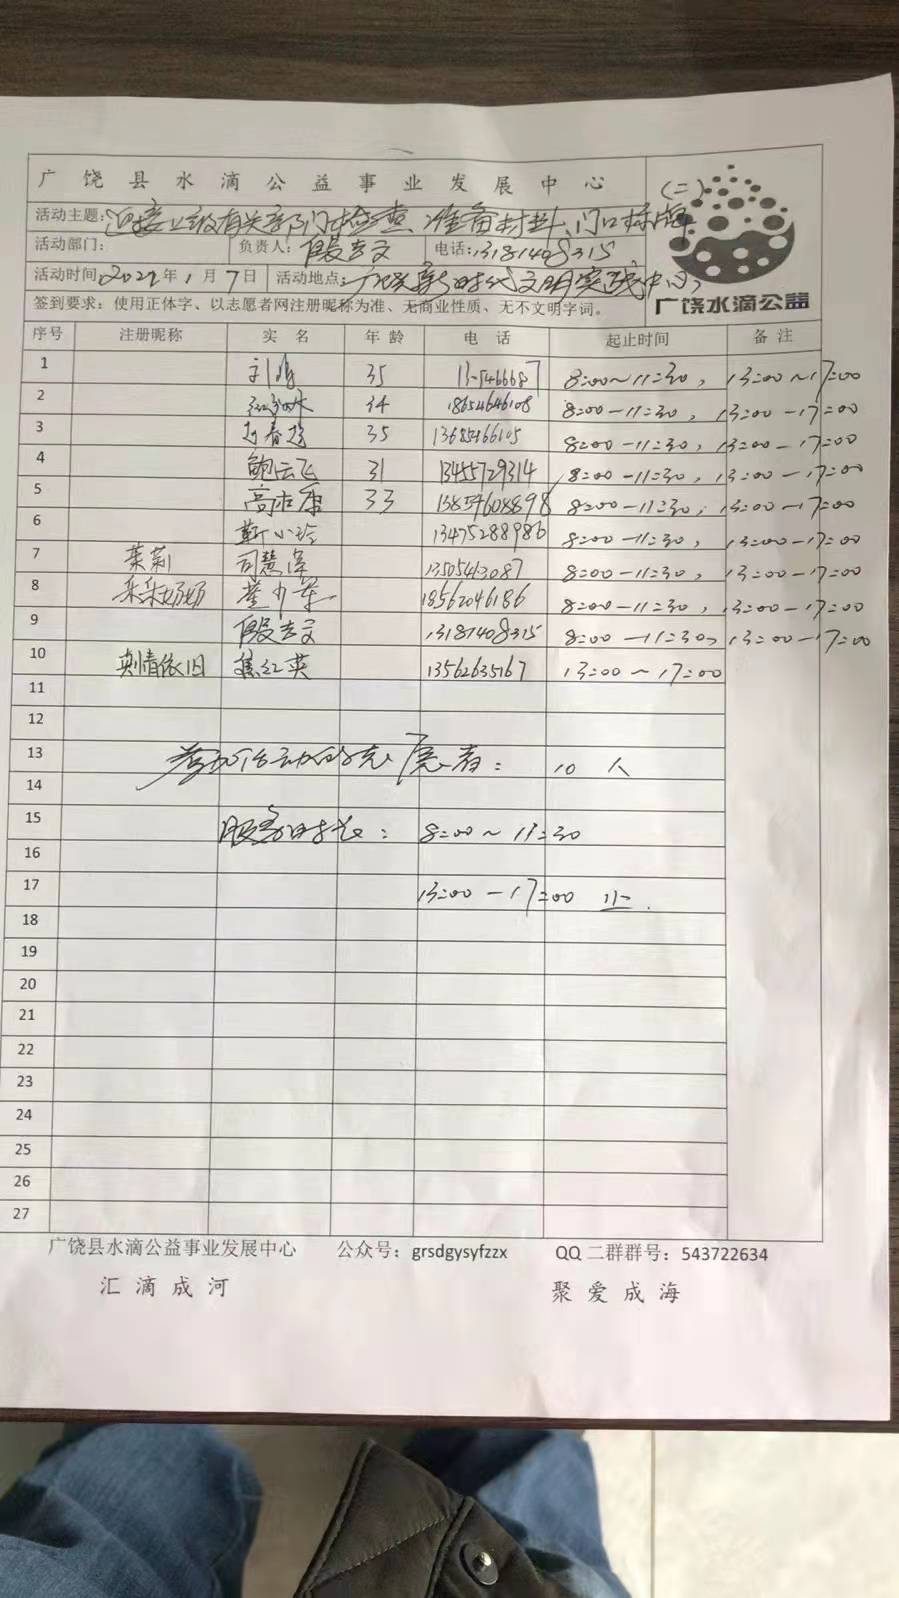 广饶县水滴公益事业发展中心 (二)
活动主题：迎接上级有关部门检查、准备材料、门口标牌
活动部门： 负责人：殷志文 电话：13181408315
活动时间：2022年1月7日 活动地点：广饶新时代文明实践中心
签到要求：使用正体字、以志愿者网注册昵称为准、无商业性质、无不文明字词。
广饶水滴公益
序号 注册昵称 实名 年龄 电话 起止时间 备注
1 35 8:00～11:30， 13:00～17:00
2 34 18654646108 8:00－11:30， 13:00－17:00
3 赵春 35 8:00－11:30， 13:00－17:00
4 鲍云飞 31 13455729314 8:00－11:30， 13:00－17:00
5 33 8:00－11:30， 13:00－17:00
6 靳小玲 13475288986 8:00－11:30， 13:00－17:00
7 茉莉 司慧 13505413087 8:00－11:30， 13:00－17:00
8 朵朵奶奶 18562046186 8:00－11:30， 13:00－17:00
9 殷志文 13181408315 8:00－11:30， 13:00－17:00
10 依旧 红英 13562635167 13:00～17:00
11
12
13 参加活动的志愿者： 10人
14
15 服务时长： 8:00～11:30
16
17 13:00－17:00 止.
18
19
20
21
22
23
24
25
26
27
广饶县水滴公益事业发展中心 公众号：grsdgysyfzzx QQ二群群号：543722634
汇滴成河 聚爱成海